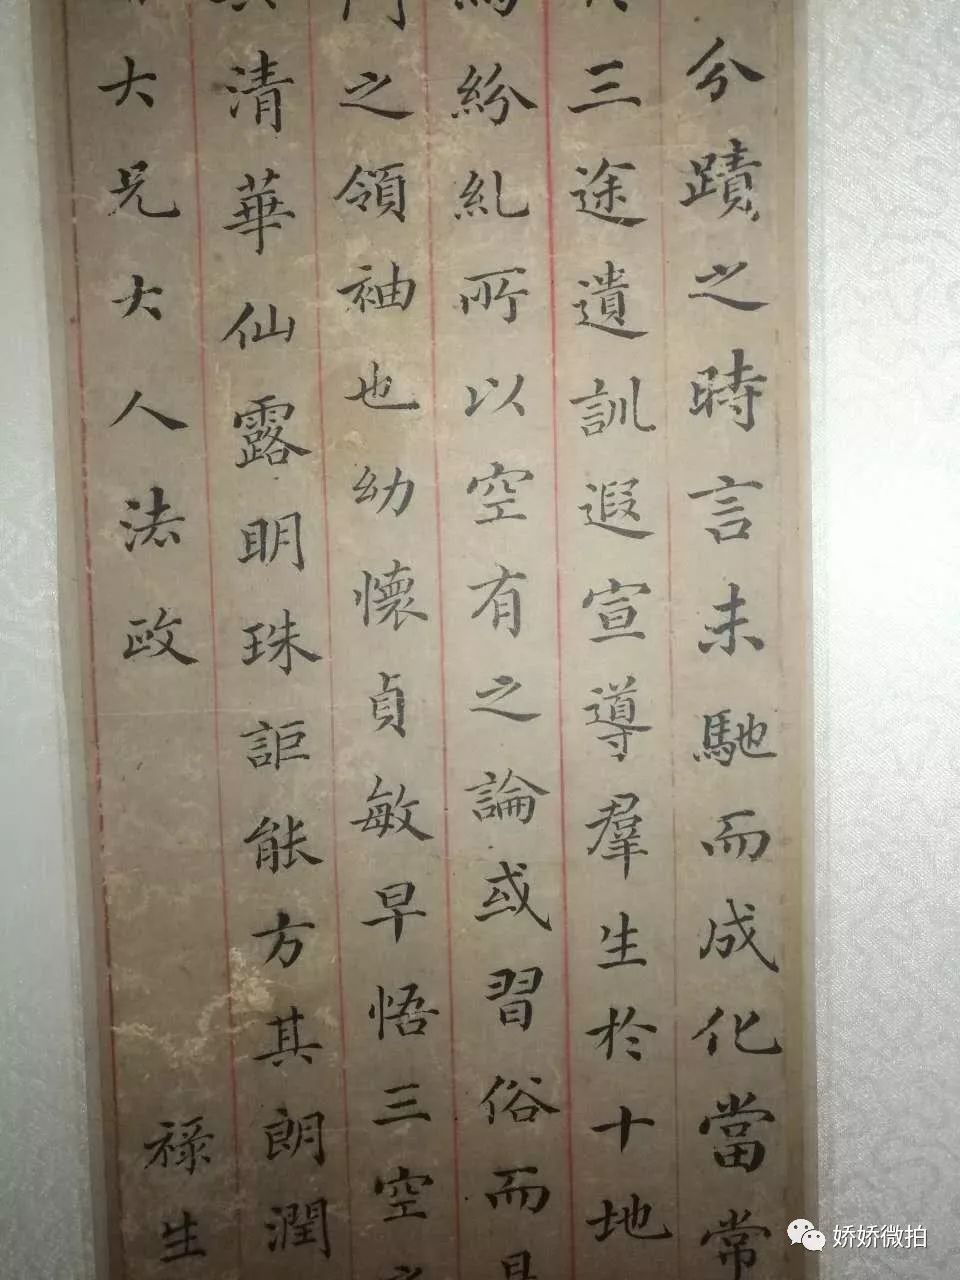 分蹟之時言未馳而成化當常
三途遺訓遐宣導羣生於十地
紛糺所以空有之論或習俗而
之領袖也幼懷貞敏早悟三空
清華仙露明珠詎能方其朗潤
大兄大人法政
祿生
娇娇微拍